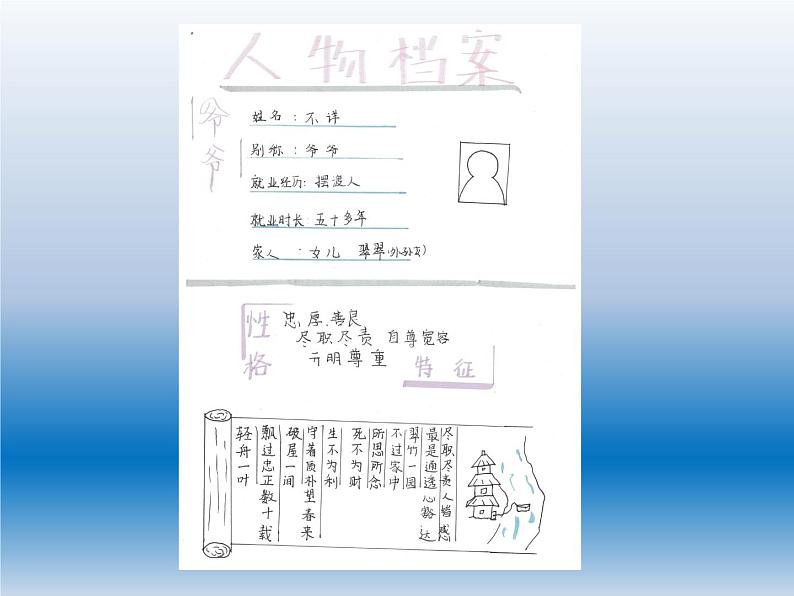 人物档案
爷爷
姓名：不详
别称：爷爷
就业经历：摆渡人
就业时长：五十多年
家人：女儿 翠翠(外孙女)
性格
忠厚、善良
尽职尽责 自尊宽容
开明尊重
特征
轻舟一叶
飘过忠正数十载
破屋一间
守着质朴望春来
生不为利
死不为财
所思所念
不过家中
翠竹一园
最是通透心豁达
尽职尽责人皆感